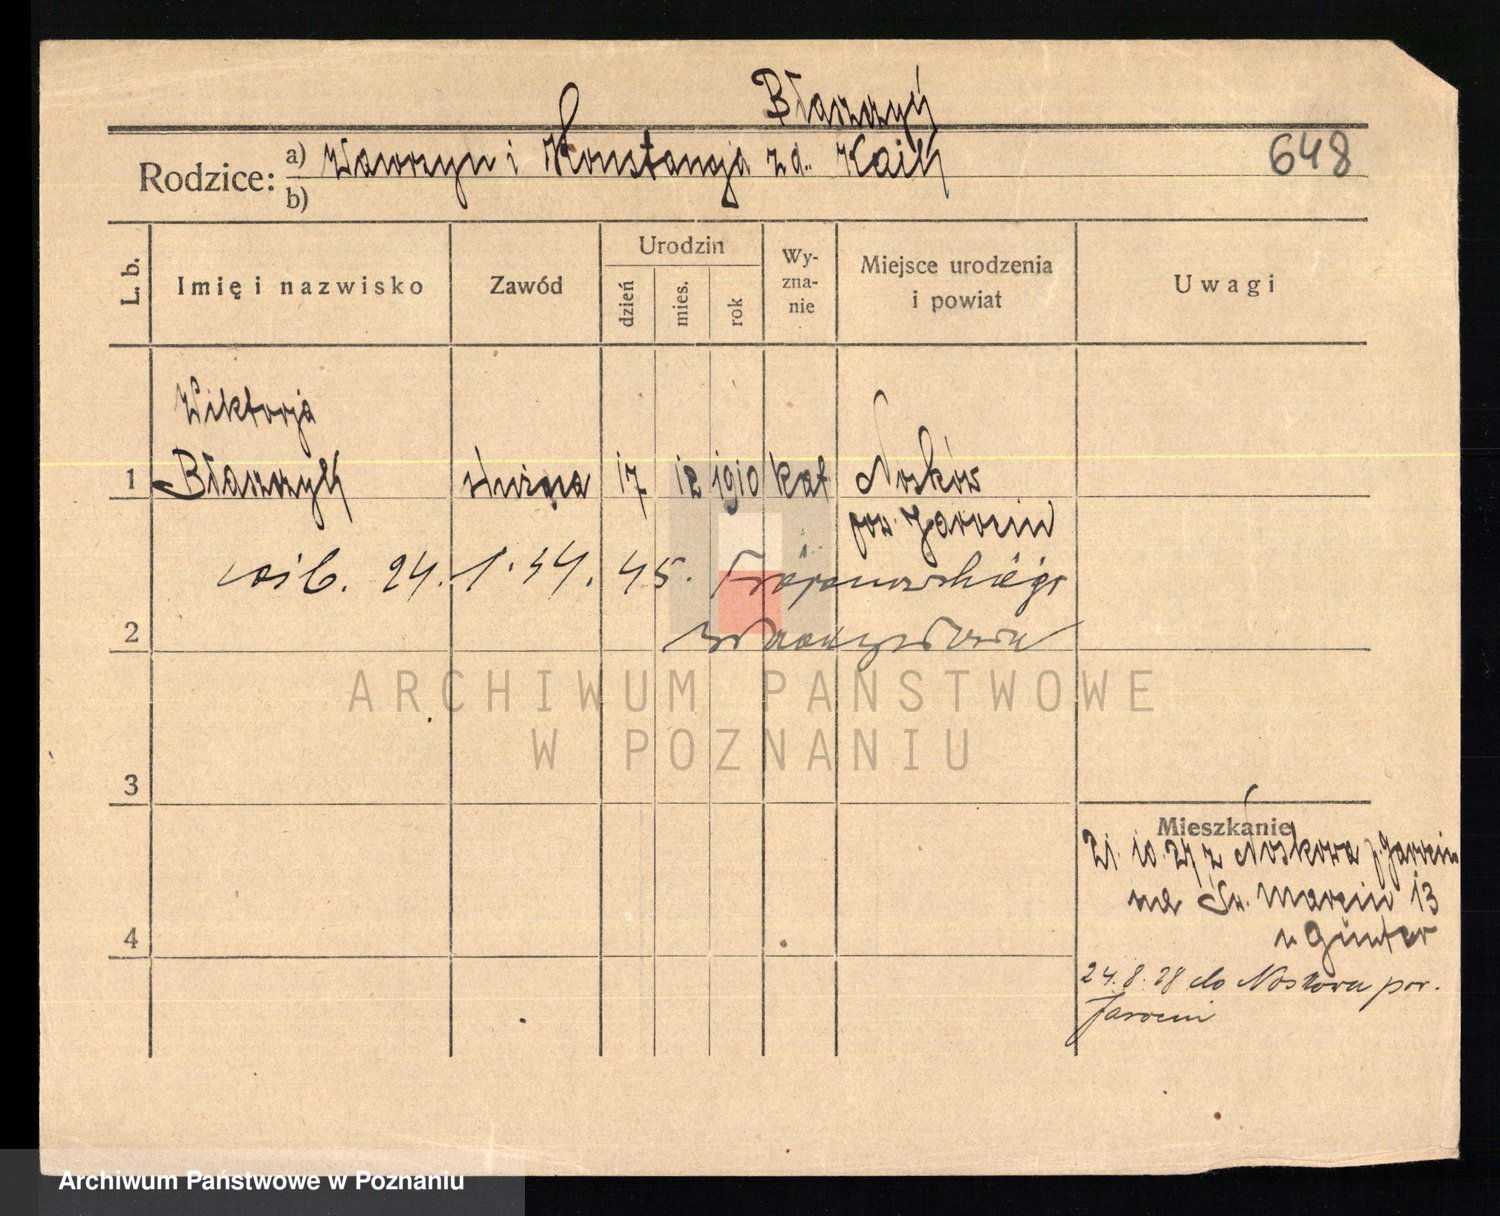 Błaszczyk
648
Rodzice: a) Wawrzyn i Konstancja z d. Kaik
b)
L. b.
Imię i nazwisko
Zawód
Urodzin
dzień
mies.
rok
Wy-
zna-
nie
Miejsce urodzenia
i powiat
Uwagi
Wiktorja
1 Błaszczyk służąca 17 12 1910 kat Nosków
pow. Jarocin
24. 1. 34. 45.
2
ARCHIWUM PAŃSTWOWE
W POZNANIU
3
Mieszkanie
21. 10. 27 z Noskowa p. Jarocin
na Św. Marcin 13
u Günter
4
24. 8. 28 do Noskowa pow.
Jarocin
Archiwum Państwowe w Poznaniu